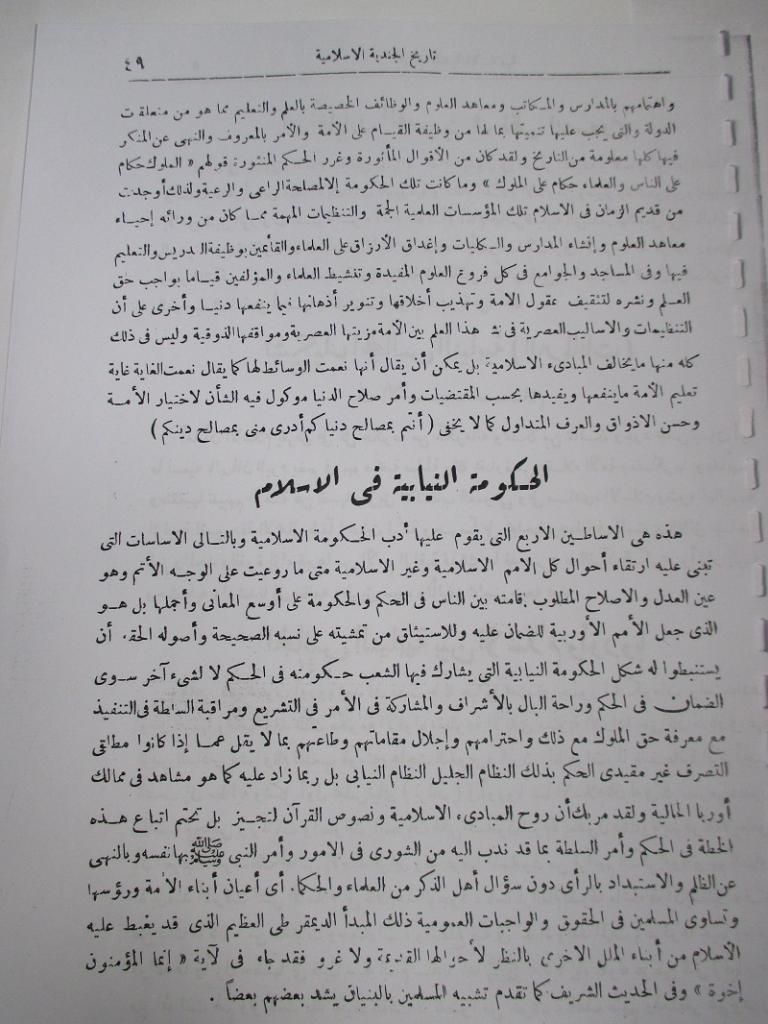 تاريخ الجندية الاسلامية
٤٩
واهتمامهم بالمدارس والمكاتب ومعاهد العلوم والوظائف الخصيصة بالعلم والتعليم مما هو من متعلقات
الدولة والتى يجب عليها تنميتها بما لها من وظيفة القيام على الأمة والأمر بالمعروف والنهى عن المنكر
فيها كلها معلومة من التاريخ ولقد كان من الأقوال المأثورة وغرر الحكم المنثورة قولهم « الملوك حكام
على الناس والعلماء حكام على الملوك » وما كانت تلك الحكومة إلا لمصلحة الراعى والرعية ولذلك أوجدت
من قديم الزمان فى الاسلام تلك المؤسسات العلمية الجمة والتنظيمات المهمة مما كان من ورائه إحياء
معاهد العلوم وإنشاء المدارس والكليات وإغداق الأرزاق على العلماء والقائمين بوظيفة التدريس والتعليم
فيها وفى المساجد والجوامع فى كل فروع العلوم المفيدة وتنشيط العلماء والمؤلفين قياما بواجب حق
العلم ونشره لتثقيف عقول الامة وتهذيب أخلاقها وتنوير أذهانها فيما ينفعها دنيا وأخرى على أن
التنظيمات والاساليب العصرية فى نشر هذا العلم بين الأمة مزيتها العصرية ومواقفها الذوقية وليس فى ذلك
كله منها ما يخالف المبادىء الاسلامية بل يمكن أن يقال أنها نعمت الوسائط لها كما يقال نعمت الغاية غاية
تعليم الأمة ما ينفعها ويفيدها بحسب المقتضيات وأمر صلاح الدنيا موكول فيه الشأن لاختيار الأمة
وحسن الاذواق والعرف المتداول كما لا يخفى ( أنتم بمصالح دنياكم أدرى منى بمصالح دينكم )
الحكومة النيابية فى الاسلام
هذه هى الاساطين الاربع التى يقوم عليها أدب الحكومة الاسلامية وبالتالى الاساسات التى
تبنى عليه ارتقاء أحوال كل الامم الاسلامية وغير الاسلامية متى ما روعيت على الوجه الأتم وهو
عين العدل والاصلاح المطلوب إقامته بين الناس فى الحكم والحكومة على أوسع المعانى وأجملها بل هو
الذى جعل الأمم الأوربية للضمان عليه وللاستيثاق من تمشيته على نسبه الصحيحة وأصوله الحقة أن
يستنبطوا له شكل الحكومة النيابية التى يشارك فيها الشعب حكومته فى الحكم لا لشىء آخر سوى
الضمان فى الحكم وراحة البال بالأشراف والمشاركة فى الأمر فى التشريع ومراقبة السلطة فى التنفيذ
مع معرفة حق الملوك مع ذلك واحترامهم وإجلال مقاماتهم وطاعتهم بما لا يقل عما إذا كانوا مطلقى
التصرف غير مقيدى الحكم بذلك النظام الجليل النظام النيابى بل ربما زاد عليه كما هو مشاهد فى ممالك
أوربا الحالية ولقد مر بك أن روح المبادىء الاسلامية ونصوص القرآن لتجيز بل تحتم اتباع هذه
الخطة فى الحكم وأمر السلطة بما قد ندب اليه من الشورى فى الامور وأمر النبى ﷺ بها نفسه وبالنهى
عن الظلم والاستبداد بالرأى دون سؤال أهل الذكر من العلماء والحكماء أى أعيان أبناء الأمة ورؤسها
وتساوى المسلمين فى الحقوق والواجبات العمومية ذلك المبدأ الديمقرطى العظيم الذى قد يغبط عليه
الاسلام من أبناء الملل الاخرى بالنظر لأحوالها القديمة ولا غرو فقد جاء فى لآية « إنما المؤمنون
إخوة » وفى الحديث الشريف كما تقدم تشبيه المسلمين بالبنياق يشد بعضهم بعضاً .